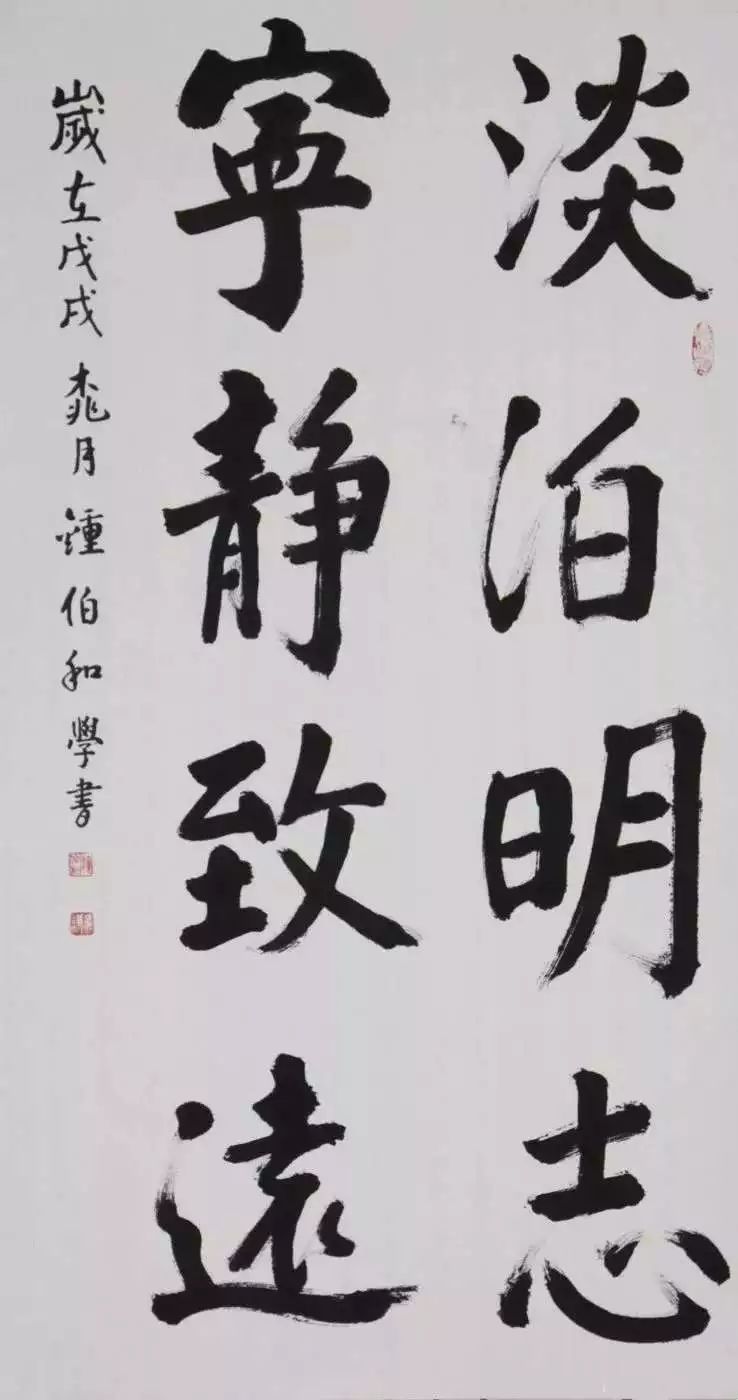 淡泊明志
寧靜致遠
歲在戊戌桃月鍾伯和學書